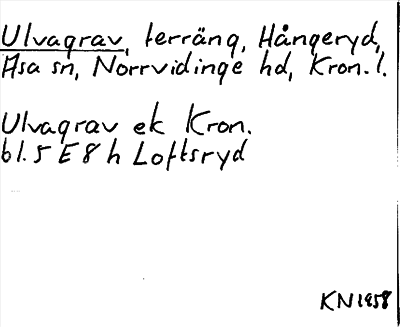 Ulvagrav, terräng, Hångeryd,
Asa sn, Norrvidinge hd, Kron. l.
Ulvagrav ek Kron.
bl. 5 E 8 h Loftsryd
KN 1958